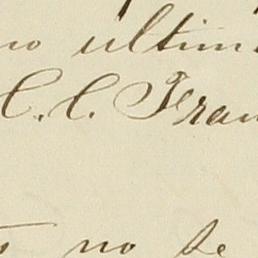 no ultim
C. C. Fran
no se